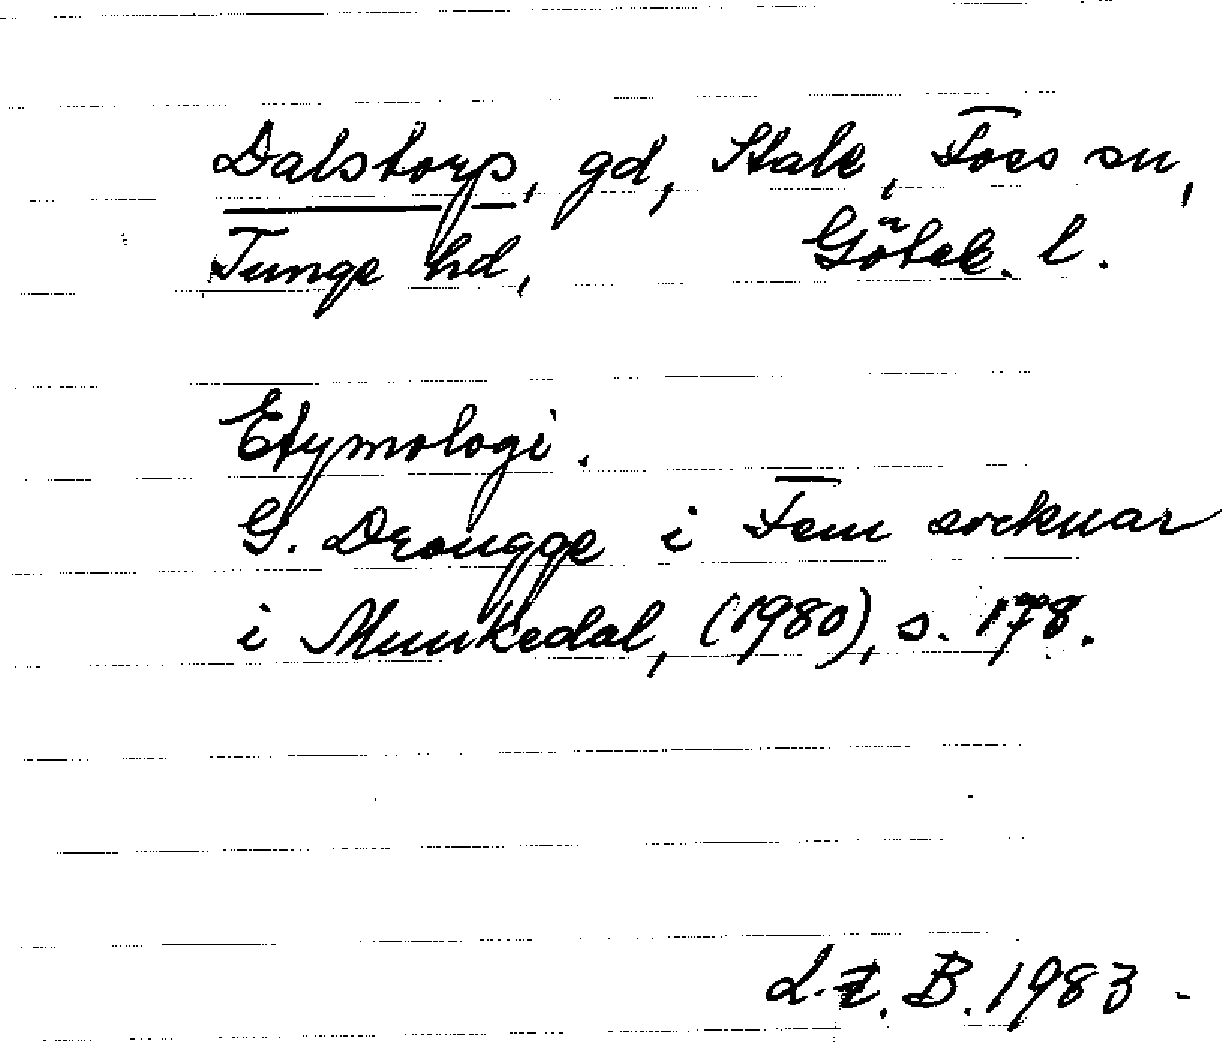 Dalstorp, gd, Stale, Foss sn,
Tunge hd, Göteb. l.
Etymologi.
G. Drougge i Fem socknar
i Munkedal, (1980), s. 178.
B. 1983